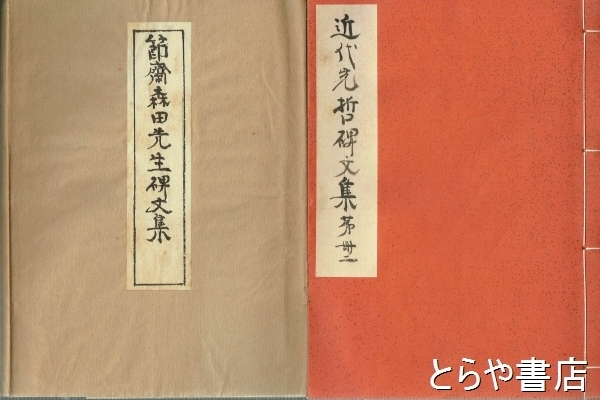 節齋森田先生碑文集
近代先哲碑文集
第卅二
とらや書店